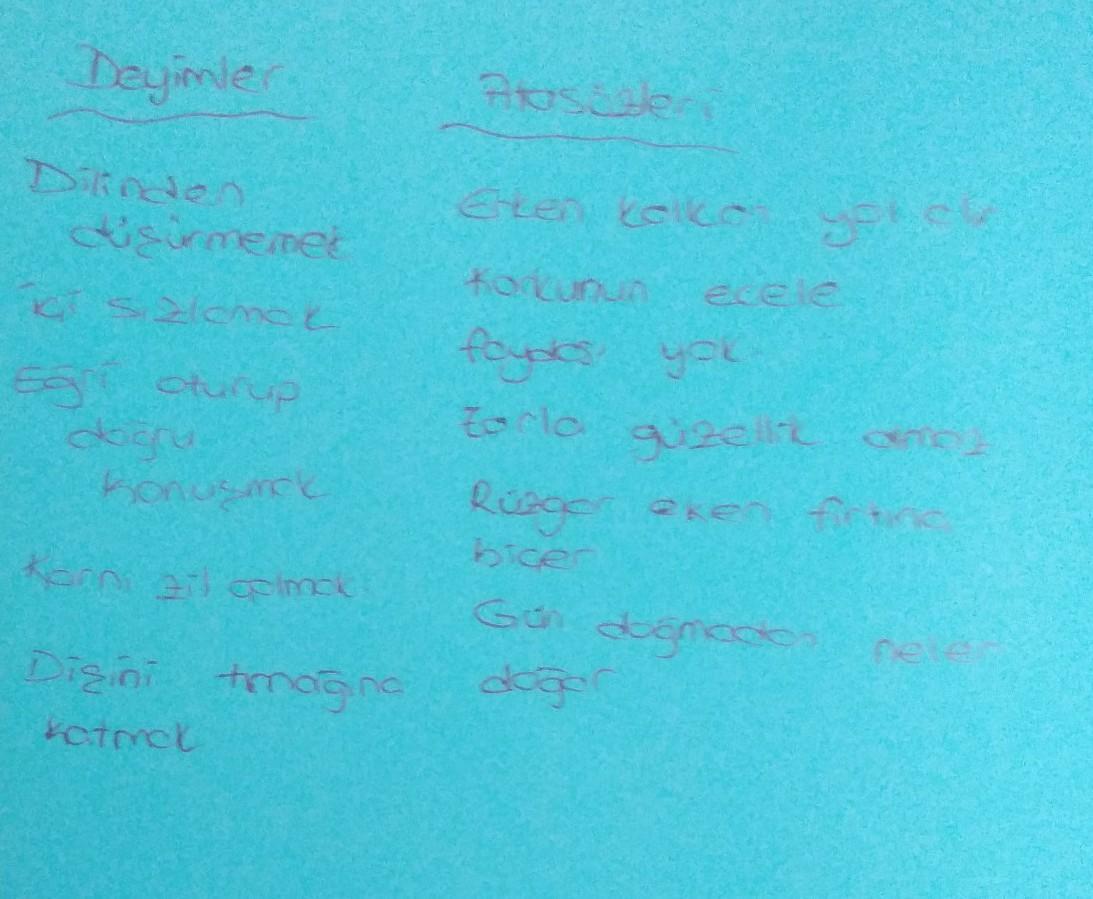 Deyimler
Dilinden
düşürmemek
içi sızlamak
Eğri oturup
doğru
konuşmak
Karnı zil çalmak
Dişini tırnağına
katmak
Atasözleri
Erken kalkan yol alır
Korkunun ecele
faydası yok
Zorla güzellik olmaz
Rüzgar eken fırtına
biçer
Gün doğmadan neler
doğar